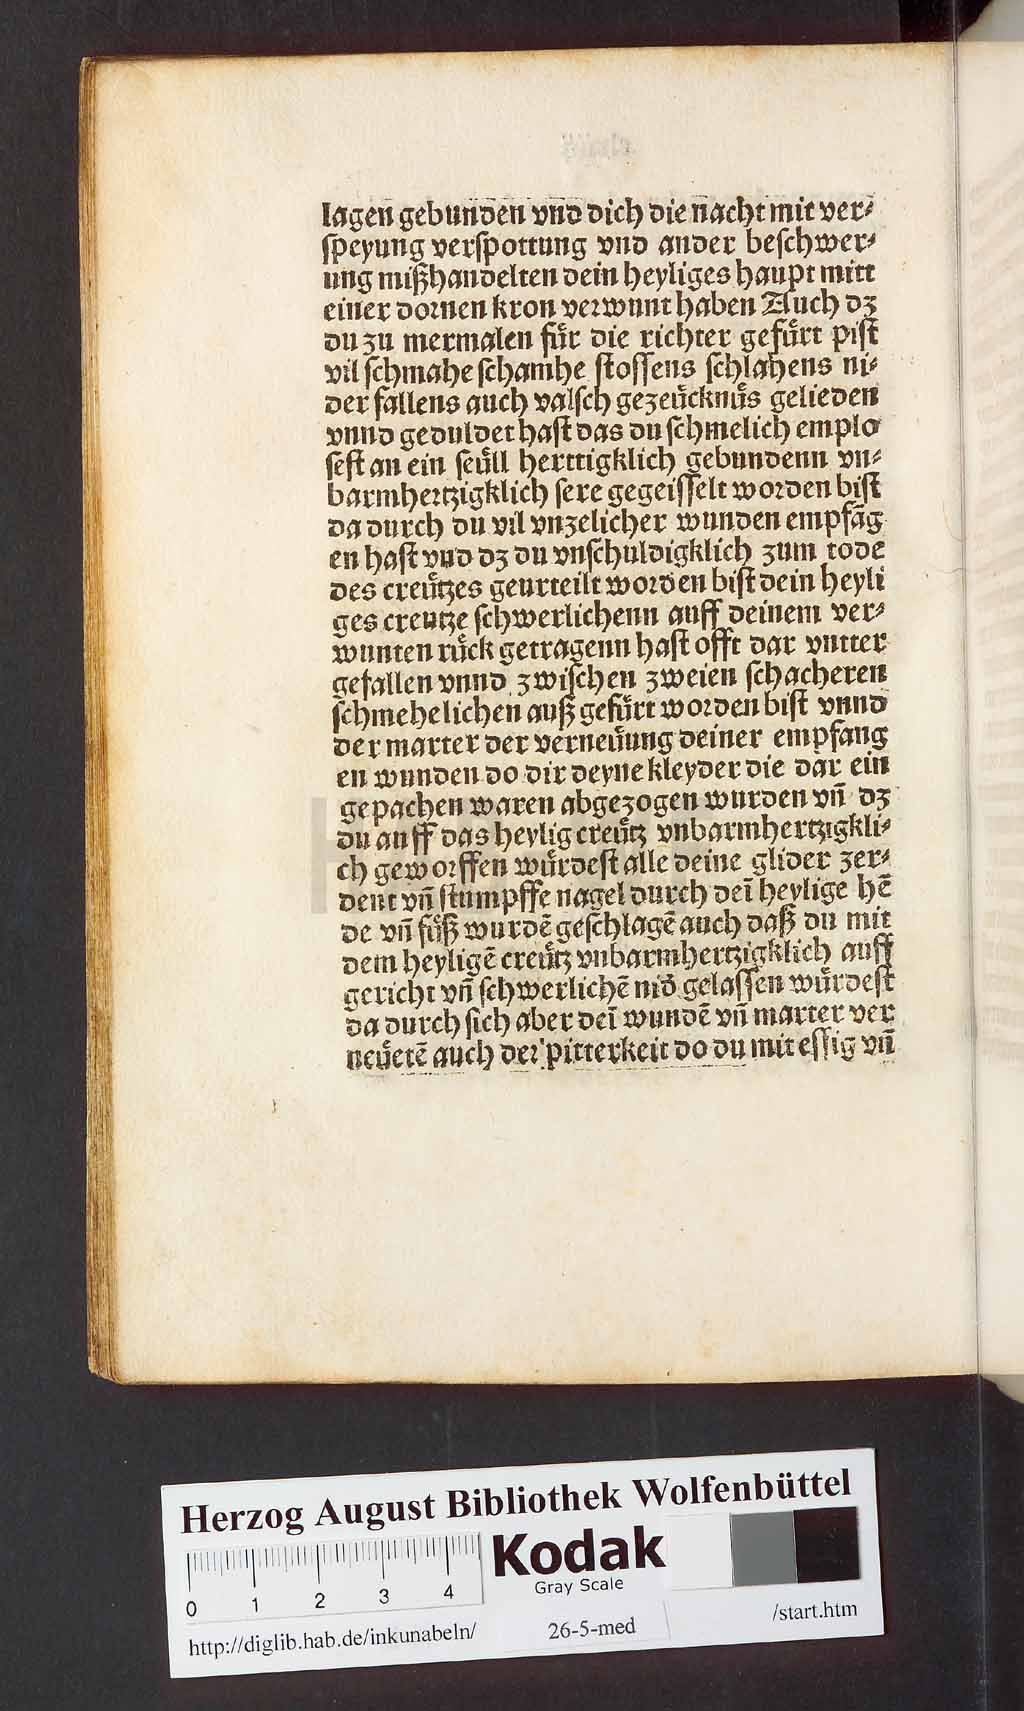 lagen gebunden vnd dich die nacht mit ver⸗
ſpeyung verſpottung vnd ander beſchwer⸗
ung mißhandelten dein heyliges haupt mitt
einer dornen kron verwunt haben Auch dz
du zu mermalen fuͤr die richter gefuͤrt piſt
vil ſchmahe ſchamhe ſtoſſens ſchlahens ni⸗
der fallens auch valſch gezeuͤcknuͤs gelieden
vnnd geduldet haſt das du ſchmelich emplo
ſeſt an ein ſeuͤll herttigklich gebundenn vn⸗
barmhertzigklich ſere gegeiſſelt worden biſt
da durch du vil vnzelicher wunden empfāg
en haſt vnd dz du vnſchuldigklich zum tode
des creuͤtzes geurteilt worden biſt dein heyli
ges creutze ſchwerlichenn auff deinem ver⸗
wunten ruͤck getragenn haſt offt dar vntter
gefallen vnnd zwiſchen zweien ſchacheren
ſchmehelichen auß gefuͤrt worden biſt vnnd
der marter der verneuͤung deiner empfang
en wunden do dir deyne kleyder die dar ein
gepachen waren abgezogen wurden vn̄ dz
du auff das heylig creuͤtz vnbarmhertzigkli⸗
ch geworffen wuͤrdeſt alle deine glider zer⸗
dent vn̄ ſtumpffe nagel durch dei̅ heylige hē
de vn̄ fuͤß wurdē geſchlagē auch daß du mit
dem heyligē creuͤtz vnbarmhertzigklich auff
gericht vn̄ ſchwerlichē nid̓ gelaſſen wuͤrdeſt
da durch ſich aber dei̅ wundē vn̄ marter ver
neuͤetē auch der pitterkeit do du mit eſſig vn̄
Herzog August Bibliothek Wolfenbüttel
Kodak
Gray Scale
0 1 2 3 4
http://diglib.hab.de/inkunabeln/ 26-5-med /start.htm